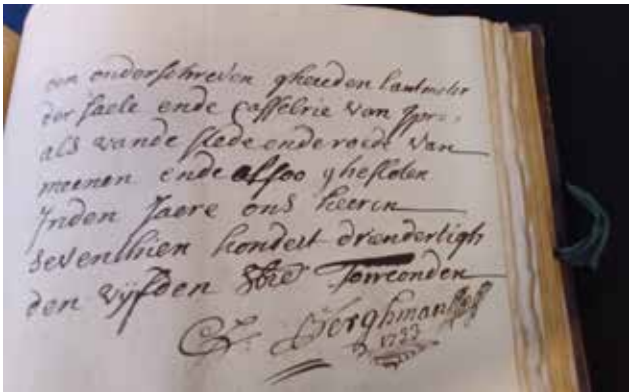 den onderschreven ghesueden Lantmeter
der saele ende Casselrie van Ypre
als vande stede ende roede van
meenen ende alsoo ghesloten
Inden Jaere ons heeren
seventhien hondert drendertigh
den vijfden Torreonden
Berghman
1733